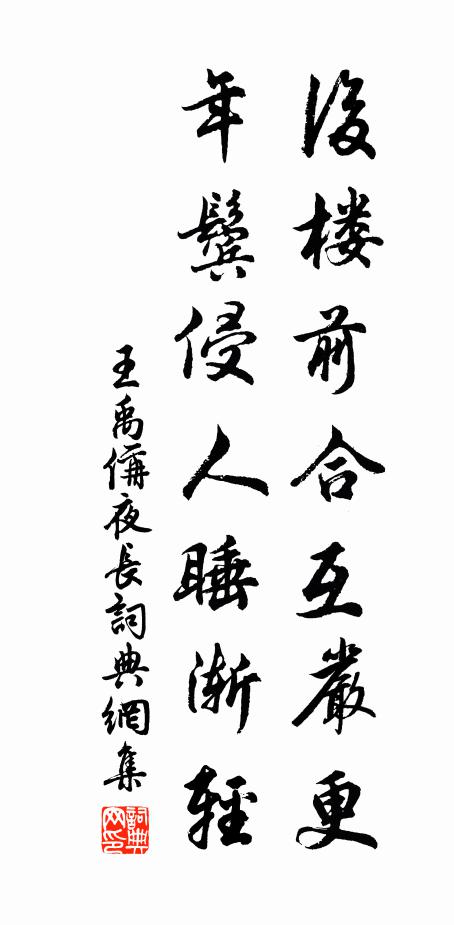 後楼前合互嚴更
年鬢侵人睡漸輕
王禹偁夜長詞典網集
詞典网印